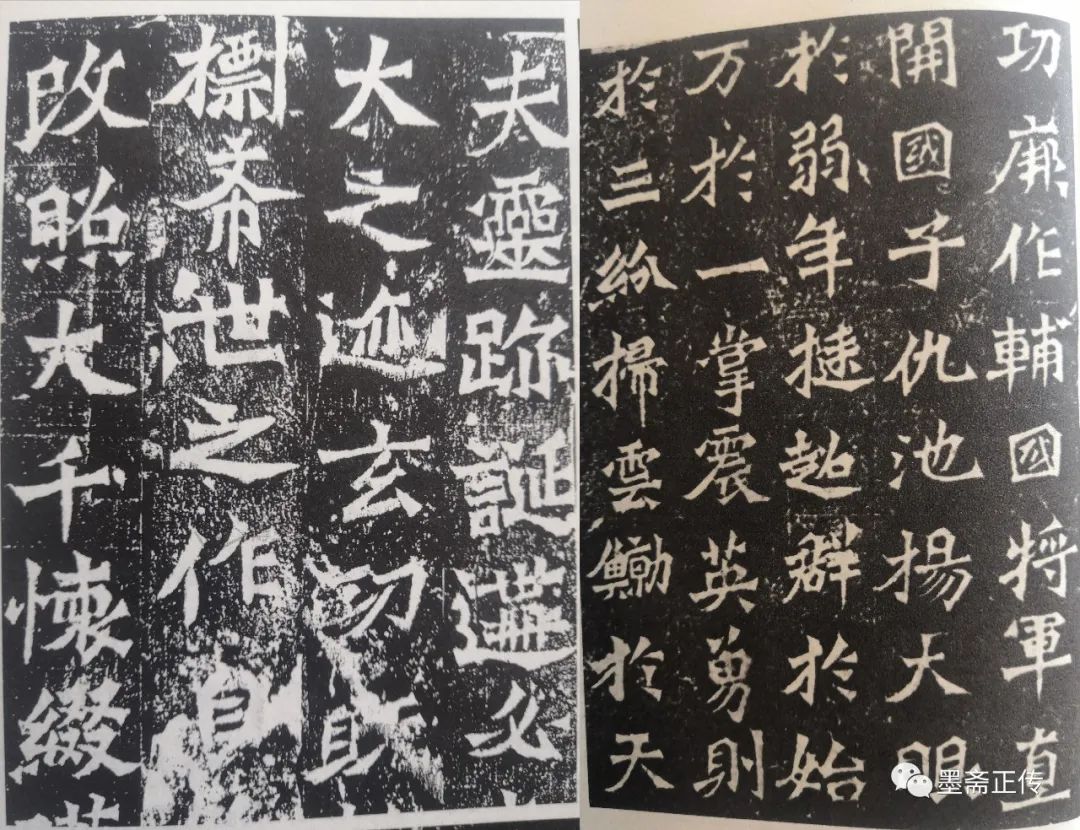 夫靈跡誕遘必
大之迹玄功既
標希世之作自
改照大千懷綴
功廉作輔國將軍直
開國子仇池揚大眼
於弱年挺超群於始
万於一掌震英勇則
於三紛掃雲䲔於天
墨斋正传